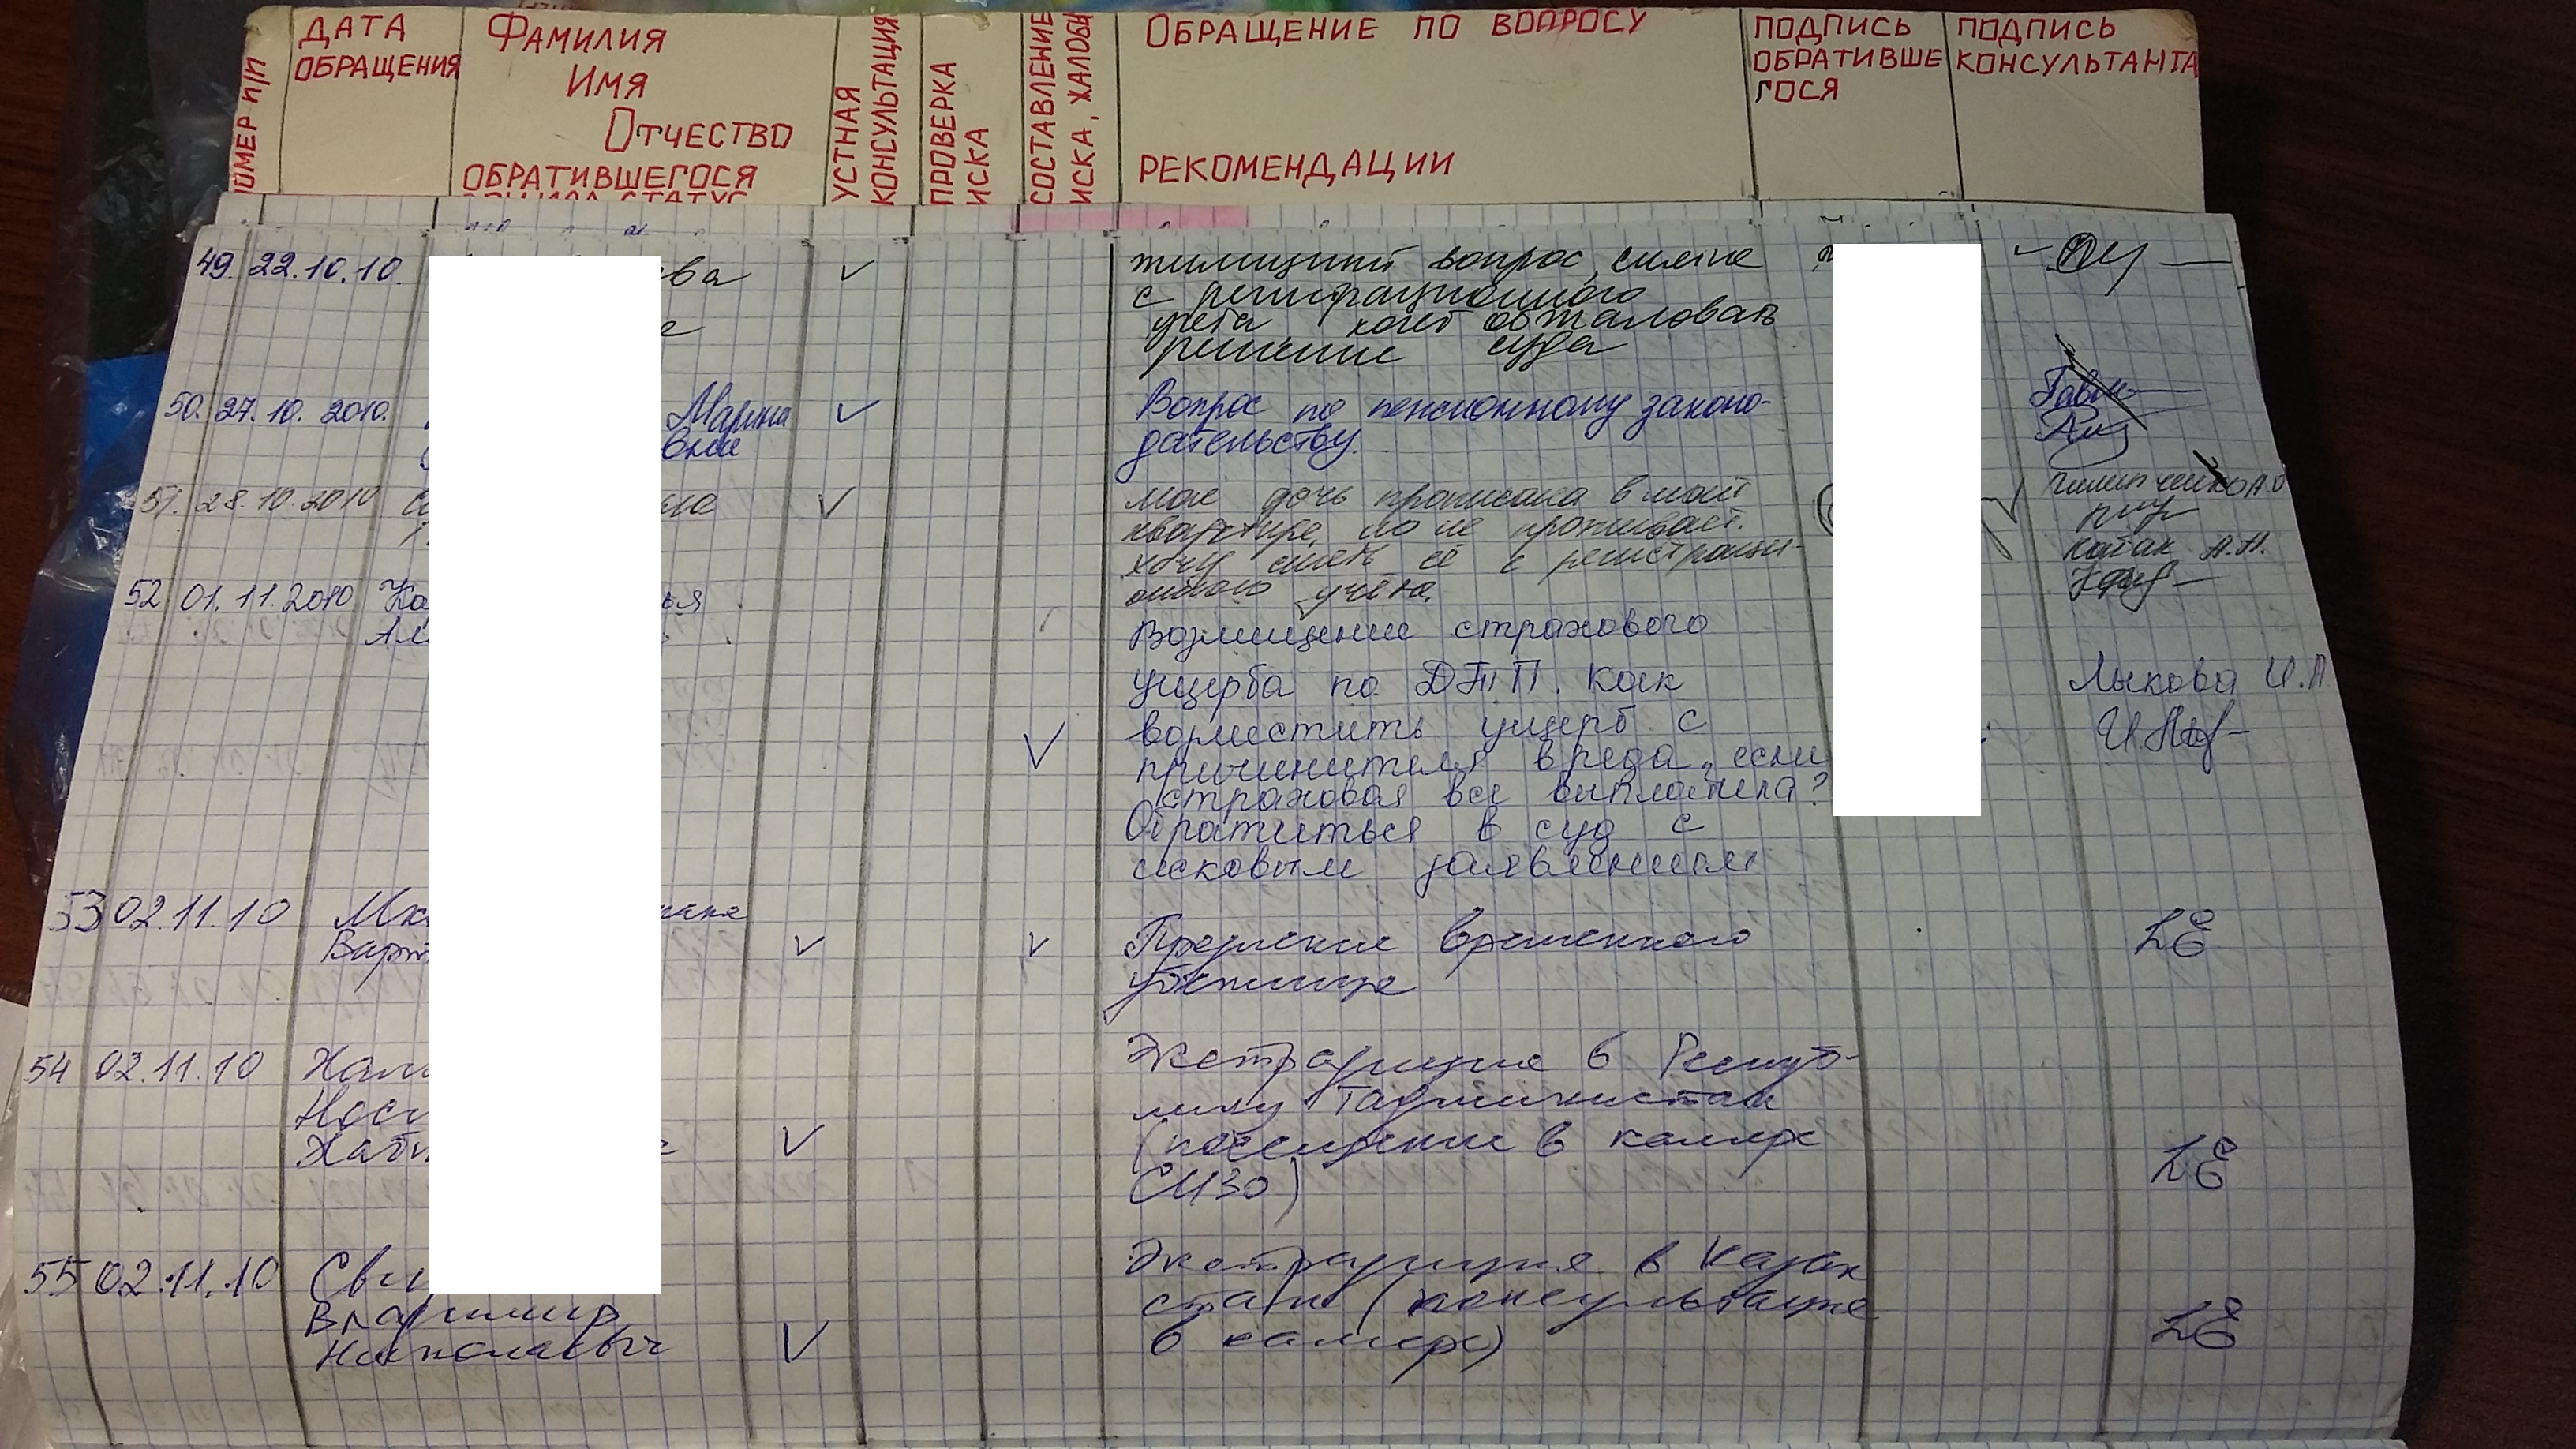 НОМЕР П/П
ДАТА
ОБРАЩЕНИЯ
ФАМИЛИЯ
ИМЯ
ОТЧЕСТВО
ОБРАТИВШЕГОСЯ
УСТНАЯ
КОНСУЛЬТАЦИЯ
ПРОВЕРКА
ИСКА
СОСТАВЛЕНИЕ
ИСКА, ЖАЛОБЫ
ОБРАЩЕНИЕ ПО ВОПРОСУ
РЕКОМЕНДАЦИИ
ПОДПИСЬ
ОБРАТИВШЕ
ГОСЯ
ПОДПИСЬ
КОНСУЛЬТАНТА
49. 22.10.10.
ева
жилищный вопрос, снятие
с регистрационного
учета хочет обжаловать
решение суда
50. 27.10.2010.
Марина
вна
Вопрос по пенсионному законо-
дательству.
51. 28.10.2010
Моя дочь прописана в моей
квартире, но не проживает.
Хочу снять её с регистраци-
онного учёта.
Кочак А.А.
52 01.11.2010 Ко
Ал
Возмещение страхового
ущерба по ДТП. Как
возместить ущерб с
причинителя вреда, если
страховая все выплатила?
Обратиться в суд с
исковым заявлением
Лыкова И.П.
53 02.11.10
Варт
Продление временного
убежища
54 02.11.10
Экстрадиция в Респуб-
лику Таджикистан
(посещение в камере
СИЗО)
55 02.11.10 Сви
Владимир
Николаевич
Экстрадиция в Казах
стан (консультация
в камере)